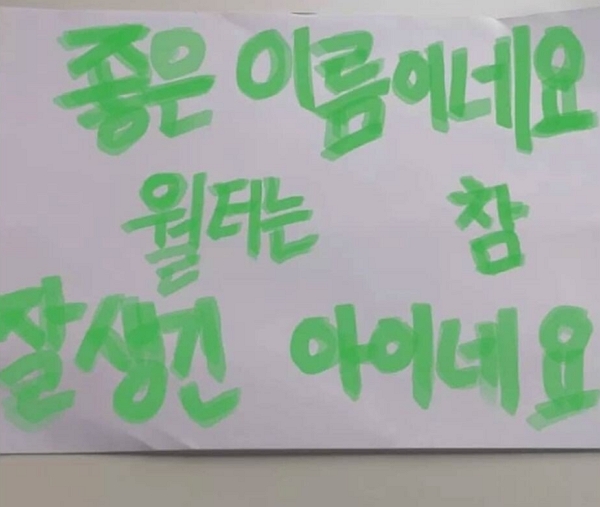 좋은 이름이네요
월터는 참
잘생긴 아이네요